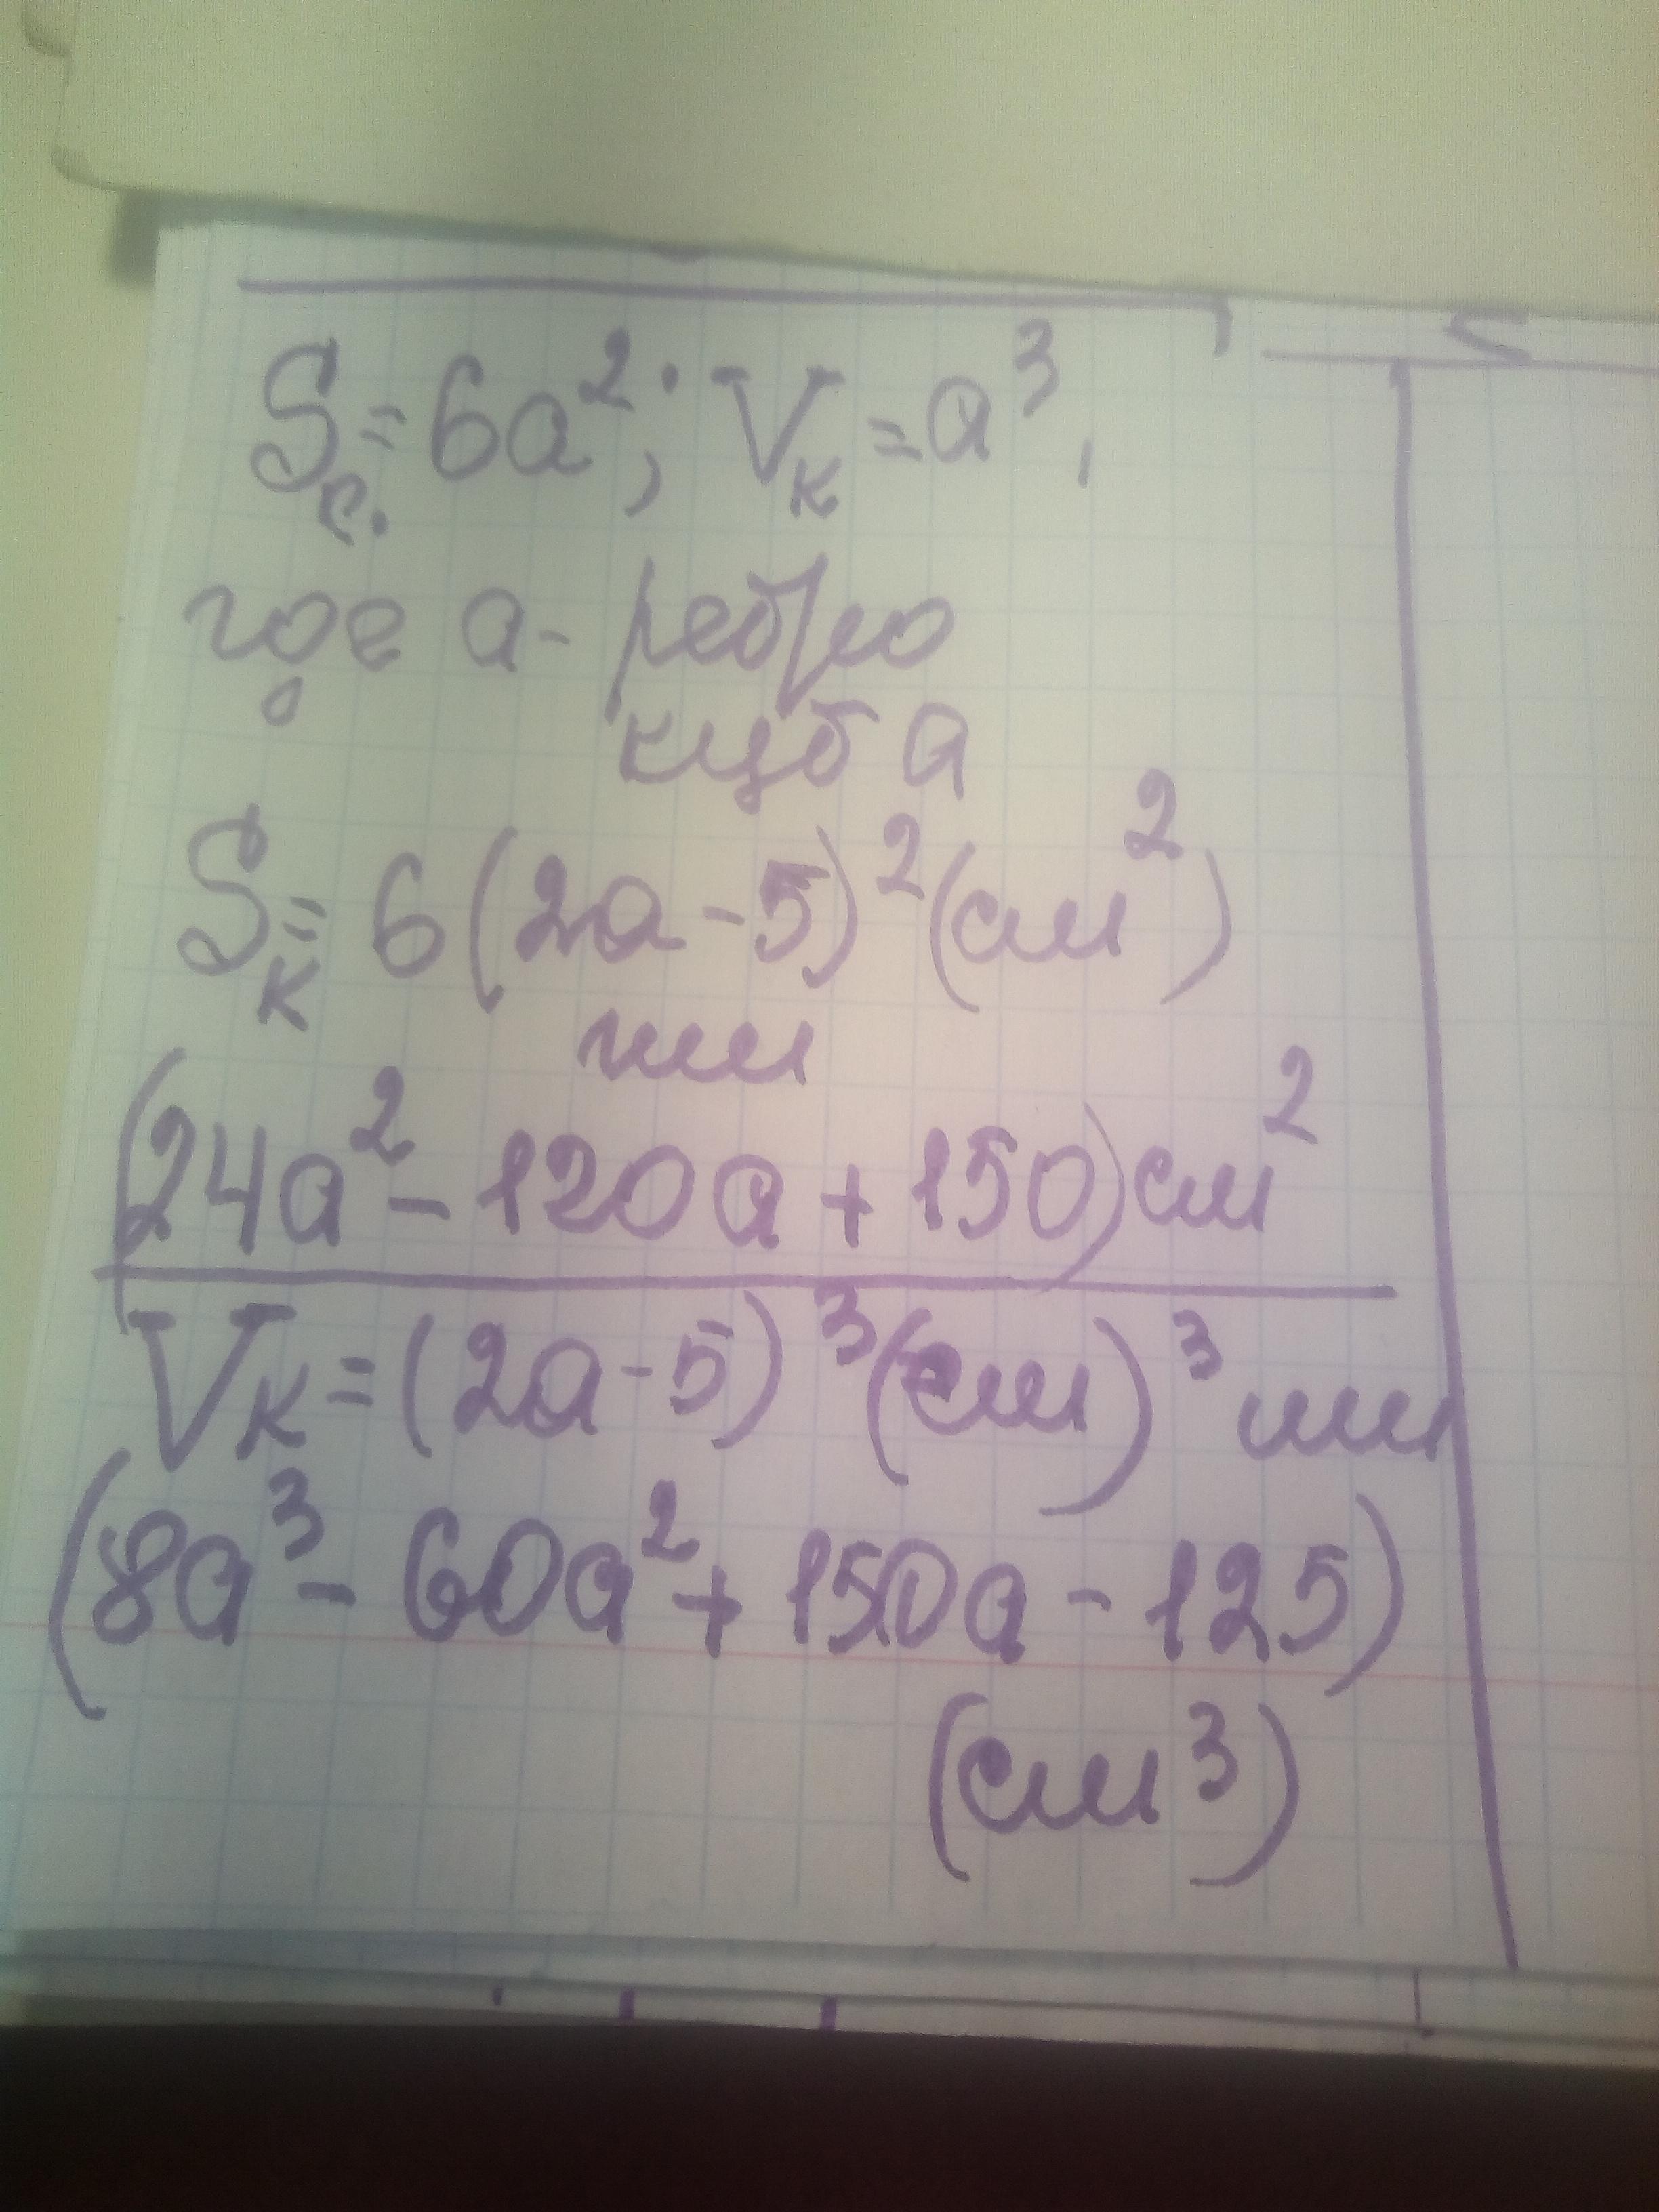 Sк.=6a²; Vк=a³,
где a- ребро
куба
Sк=6(2a-5)²(см²)
или
(24a²-120a+150)см²
Vк=(2a-5)³(см)³ или
(8a³-60a²+150a-125)
(см³)